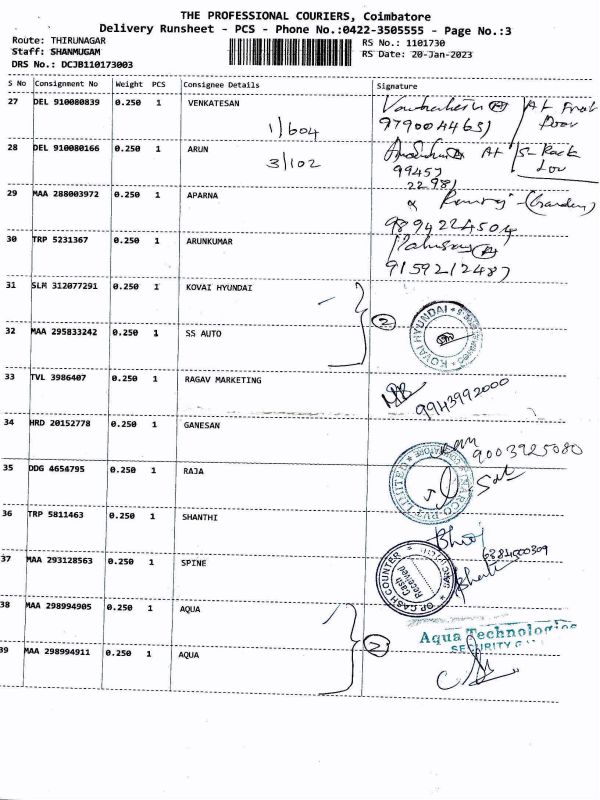 THE PROFESSIONAL COURIERS, Coimbatore
Delivery Runsheet - PCS - Phone No.:0422-3505555 - Page No.:3
Route: THIRUNAGAR
Staff: SHANMUGAM
DRS No.: DCJB110173003
RS No.: 1101730
RS Date: 20-Jan-2023
S No Consignment No Weight PCS Consignee Details Signature
27 DEL 910080839 0.250 1 VENKATESAN
1/604
9790044651
At Front
Door
28 DEL 910080166 0.250 1 ARUN
3/102
At
99457
22981
29 MAA 288003972 0.250 1 APARNA
9894224504
30 TRP 5231367 0.250 1 ARUNKUMAR
9159212487
31 SLM 312077291 0.250 1 KOVAI HYUNDAI
2
KOVAI HYUNDAI
32 MAA 295833242 0.250 1 SS AUTO
33 TVL 3986407 0.250 1 RAGAV MARKETING
9943992000
34 HRD 20152778 0.250 1 GANESAN
9003925080
35 DDG 4654795 0.250 1 RAJA
PVT LIMITED
36 TRP 5811463 0.250 1 SHANTHI
6384500309
37 MAA 293128563 0.250 1 SPINE
OP CASH COUNTER
Cash
Received
38 MAA 298994905 0.250 1 AQUA
Aqua Technologies
SECURITY
39 MAA 298994911 0.250 1 AQUA
2